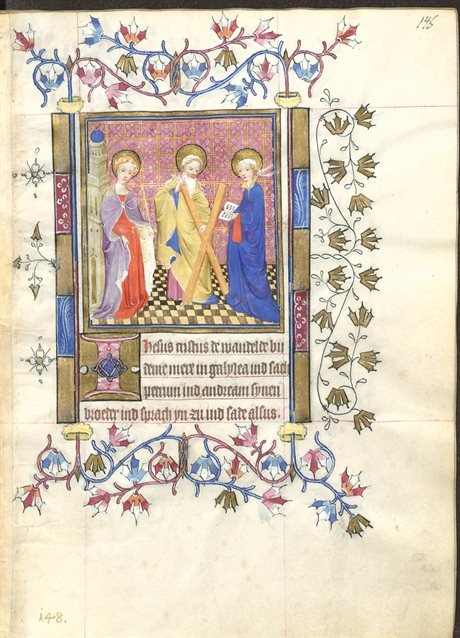 145
Ihesus cristus de wandelde bij
deme mere in galylea ind sach
petrum ind andream synen
broeder ind sprach yn zu ind sade alsus.
148.